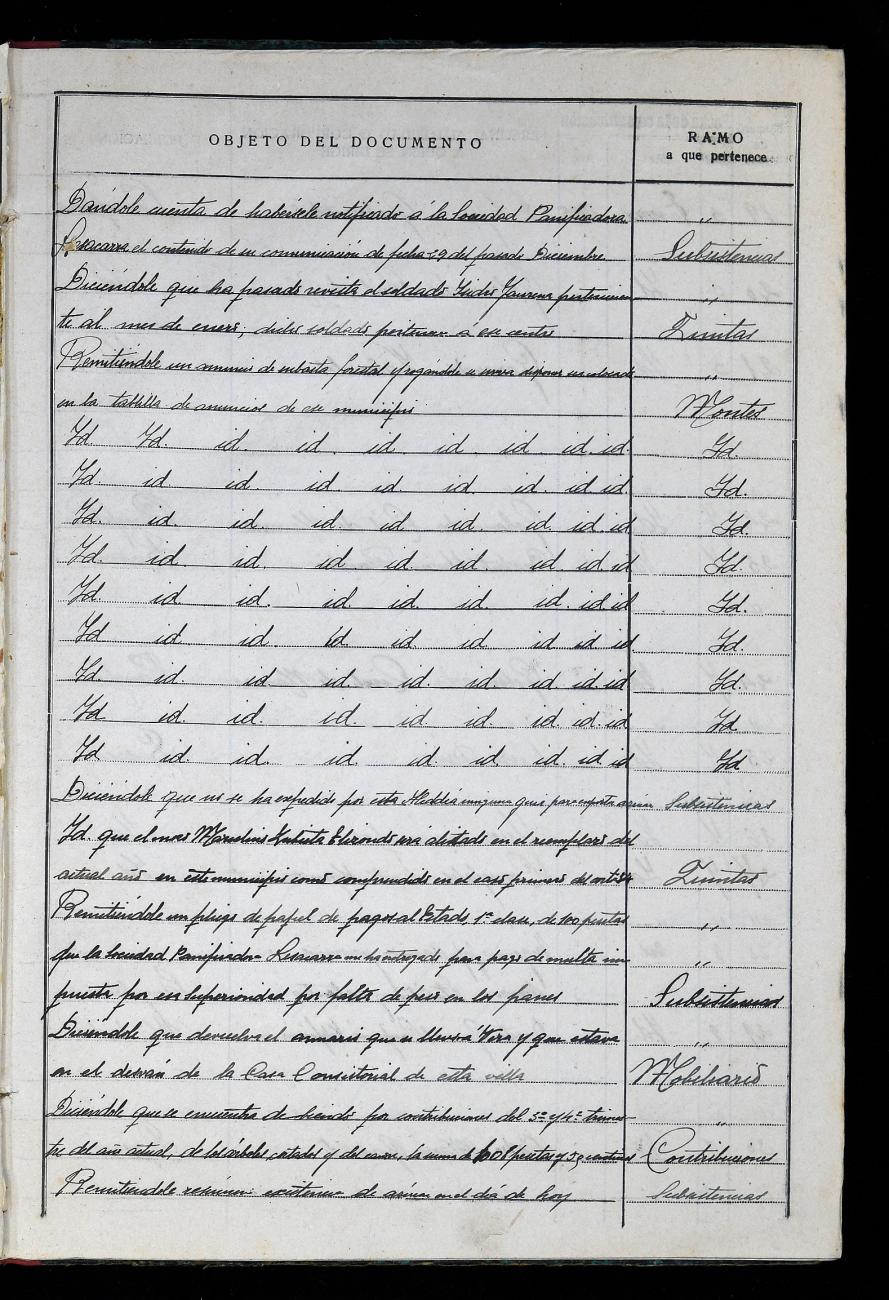 OBJETO DEL DOCUMENTO
RAMO
a que pertenece
Dandole cuenta de haberle notificado á la Sociedad Panificadora „
Lesacarra el contenido de su comunicación de fecha 29 del pasado Diciembre. Subsistencias
Diciéndole que ha pasado revista el soldado Isidro pertenecien- „
te al mes de enero; dicho soldado pertenece á ese centro Quintas
Remitiéndole un anuncio de subasta forestal y rogándole se sirva disponer sea colocado „
en la tablilla de anuncios de ese municipio Montes
Id Id. id. id. id. id. id. id. id. Id.
Id. id id. id id id. id. id id. Id.
Id. id. id. id. id id. id. id id Id.
Id. id. id. id id. id. id. id. id Id.
Id. id. id. id. id. id. id. id id Id.
Id id id. id id id. id id id Id.
Id. id. id. id. id. id. id id. id. Id.
Id id. id. id. id id. id id. id Id
Id id. id. id. id. id. id. id id Id
Diciéndole que no se ha expedido por esta Alcaldía ninguna guia para exportar arina Subsistencias
Id. que el mozo Marcelino Elizondo será alistado en el reemplazo del
actual año en este municipio como comprendido en el caso primero del Quintas
Remitiéndole un pliego de papel de pagos al Estado 1ª clase, de 100 pesetas „
que la Sociedad Panificadora Lesacarra me ha entregado para pago de multa im- „
puesta por esa Superioridad por falta de peso en los panes Subsistencias
Diciéndole que devuelva el armario que se llevó á Vera y que estava „
en el desván de la Casa Consistorial de esta villa Mobiliario
Diciéndole que se encuentra debiendo por contribuciones del 3º y 4º trimes- „
tre del año actual, de los árboles cortados y del la suma de pesetas y céntimos Contribuciones
Remitiendole resumen existencia de arina en el día de hoy Subsistencias